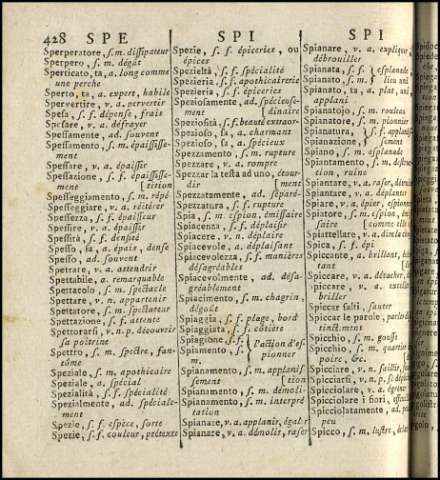 428 S P E S P I S P I
Sperperatore, s. m. dissipateur
Sperpero, s. m. dégât
Sperticato, ta, a. long comme
une perche
Sperto, ta, a. expert, habile
Spervertire, v. a. pervertir
Spesa, s. f. dépense, frais
Spesare, v. a. défrayer
Spessamente, ad. souvent
Spessamento, s. m. épaississe-
ment
Spessare, v. a. épaissir
Spessazione, s. f. épaississe-
ment [tition
Spesseggiamento, s. m. répé
Spesseggiare, v. a. réitérer
Spessezza, s. f. épaisseur
Spessire, v. a. épaissir
Spessità, s. f. densité
Spesso, sa, a. épais, dense
Spesso, ad. souvent
Spetrare, v. a. attendrir
Spettabile, a. remarquable
Spettacolo, s. m. spectacle
Spettare, v. n. appartenir
Spettatore, s. m. spectateur
Spettazione, s. f. attente
Spettorarsi, v. n. p. découvrir
sa poitrine
Spettro, s. m. spectre, fan-
tôme
Speziale, s. m. apothicaire
Speziale, a. spécial
Spezialità, s. f. spécialité
Spezialmente, ad. spéciale-
ment
Spezie, s. f. espèce, sorte
Spezie, s. f. couleur, prétexte
Spezie, s. f. épiceries, ou
épices
Spezieltà, s. f. spécialité
Spezieria, s. f. apothicairerie
Spezieria, s. f. épiceries
Speziosamente, ad. spécieuse-
ment [dinaire
Speziosità, s. f. beauté extraor-
Spezioso, sa, a. charmant
Spezioso, sa, a. spécieux
Spezzamento, s. m. rupture
Spezzare, v. a. rompre
Spezzar la testa ad uno, étour-
dir [ment
Spezzatamente, ad. séparé-
Spezzatura, s. f. rupture
Spia, s. m. espion, émissaire
Spiacenza, s. f. déplaisir
Spiacere, v. n. déplaire
Spiacevole, a. déplaisant
Spiacevolezza, s. f. manières
désagréables
Spiacevolmente, ad. désa-
gréablement
Spiacimento, s. m. chagrin,
dégoût
Spiaggia, s. f. plage, bord
Spiaggiata, s. f. côtière
Spiagione, s. f. } l'action d'es-
Spiamento, s. } pionner
m.
Spianamento, s. m. applanis
sement [tion
Spianamento, s. m. démoli-
Spianamento, s. m. interpré
tation
Spianare, v. a. applanir, égaler
Spianare, v. a. démolir, raser
Spianare, v. a. expliquer,
débrouiller
Spianata, s. f. } esplanade,
Spianato, s. m. } lieu uni
Spianato, ta, a. plat, uni,
applani
Spianatojo, s. m. rouleau
Spianatore, s. m. pionnier
Spianatura, } s. f. applanis-
Spianazione, } sement
Spiano, s. m. esplanade
Spiantamento, s. m. destruc-
tion, ruine
Spiantare, v. a. raser, détruire
Spiantare, v. a. déplanter
Spiare, v. a. épier, espionner
Spiatore, s. m. espion,
comme elle
Spiattellare, v. a.
Spica, s. f. épi
Spiccante, a. brillant,
tant
Spiccare, v. a. détacher,
Spiccare, v. a.
briller
Spiccar salti, sauter
Spiccar le parole, parler
tinctement
Spicchio, s. m. gousse
Spicchio, s. m. quartier
poire, &c.
Spicciare, v. n. saillir,
Spicciarsi, v. n. p. se dépê
Spicciolare, v. a. égrener
Spicciolare i fiori,
Spicciolatamente, ad.
peu
Spicco, s. m. lustre, éclat